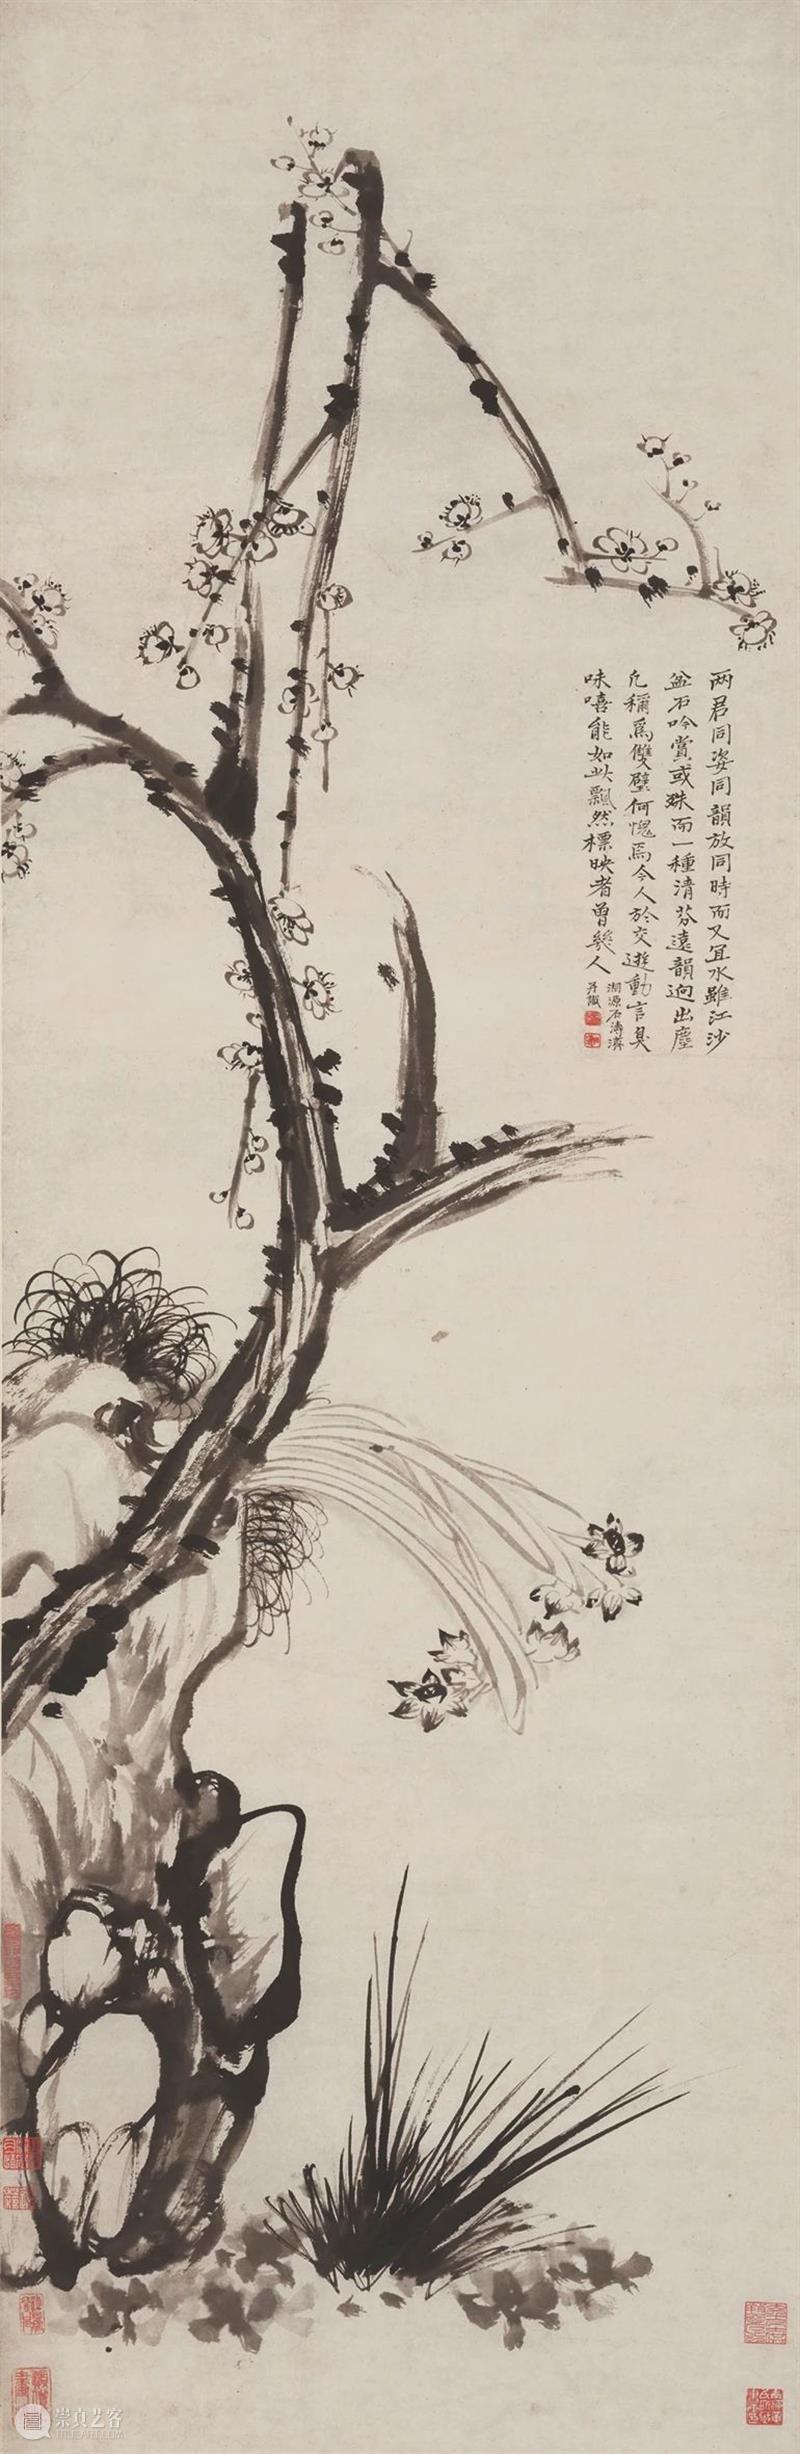 两君同姿同韻放同時而又宜水雖江沙
盆石吟賞或殊而一種清芬遠韻迥出塵
凡稱爲雙璧何愧焉今人於交遊動言臭
味嘻能如此飄然標映者曾幾人
湘源石濤濟
并識
崇真艺客